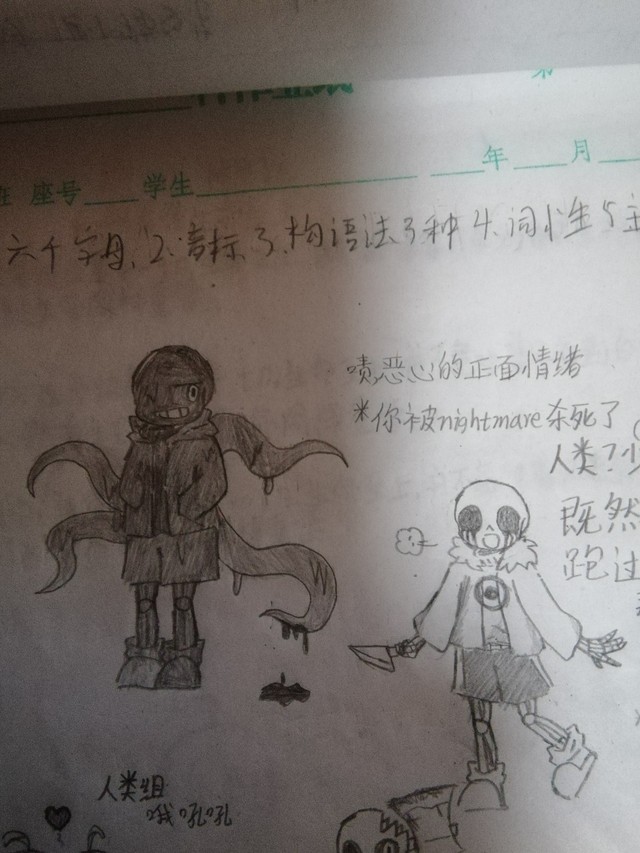 座号 学生 年 月
六个字母、2.音标 3.构语法3种 4.词性 5
啧恶心的正面情绪
*你被nightmare杀死了
人类?
既然
跑过
人类组
哦吼吼